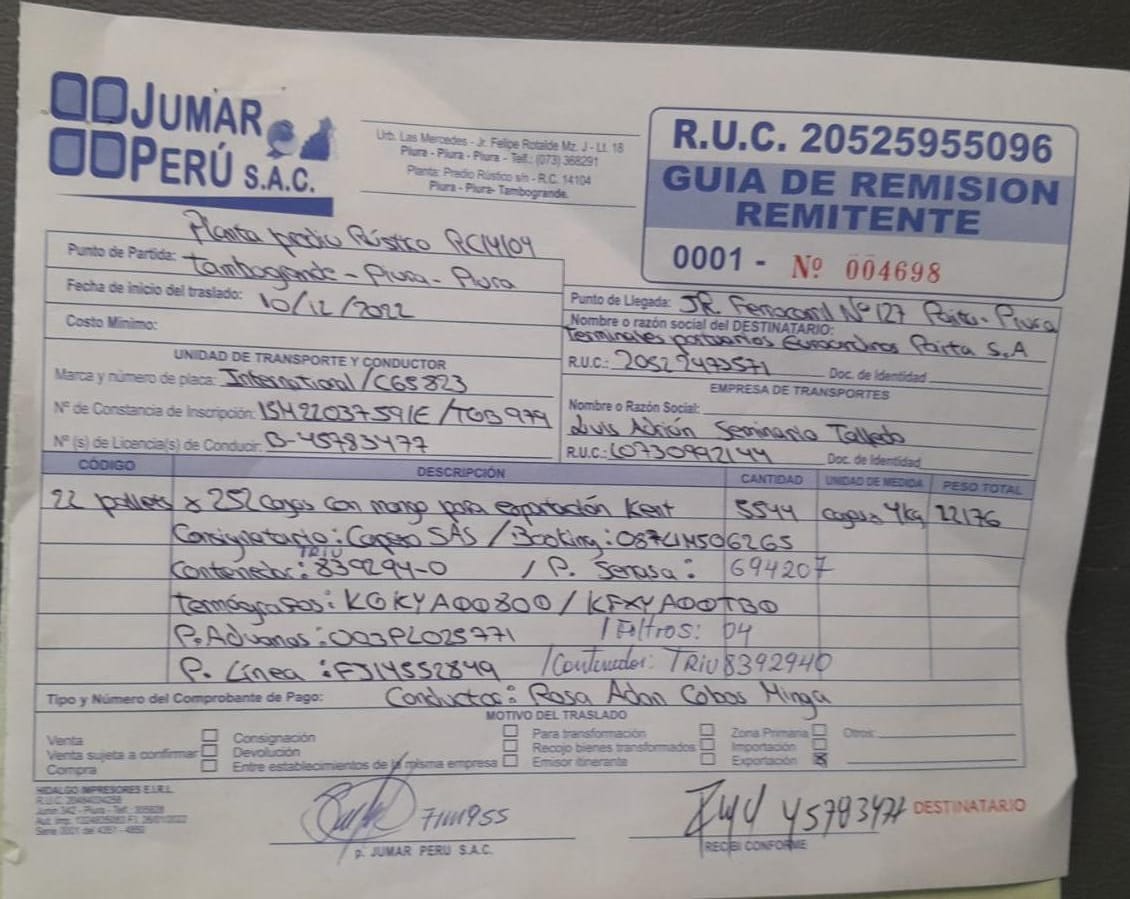 JUMAR
PERÚ S.A.C.
Urb. Las Mercedes - Jr. Felipe Rotalde Mz. J - Lt. 18
Piura - Piura - Piura - Telf.: (073) 368291
Planta: Predio Rústico s/n - R.C. 14104
Piura - Piura- Tambogrande.
R.U.C. 20525955096
GUIA DE REMISION
REMITENTE
0001 - Nº 004698
Planta predio Rústico RC14104
Punto de Partida: Tambogrande - Piura - Piura
Fecha de inicio del traslado: 10/12/2022
Costo Mínimo:
Punto de Llegada: JR. Ferrocarril Nº 127 Paita - Piura
Nombre o razón social del DESTINATARIO:
Terminales portuarios Euroandinos Paita S.A
R.U.C.: 20522473571 Doc. de Identidad
UNIDAD DE TRANSPORTE Y CONDUCTOR
Marca y número de placa: International / C65823
Nº de Constancia de Inscripción: 15M22037591E / TGB979
Nº(s) de Licencia(s) de Conducir: B-45783477
EMPRESA DE TRANSPORTES
Nombre o Razón Social:
Luis Adrián Seminario Talledo
R.U.C.: 10730992144 Doc. de Identidad
CÓDIGO DESCRIPCIÓN CANTIDAD UNIDAD DE MEDIDA PESO TOTAL
22 pallets x 252 Cajas con mango para exportación Kent 5544 cajas x 4kg 22176
Consignatario: Capexo SAS / Booking: 087LIM506265
TRIU
Contenedor: 839294-0 / P. Senasa: 694207
Termógrafos: KGKYA00800 / KFXYA00TB0
P. Aduanas: 003PL025771 / Filtros: 04
P. Línea: FJ14552849 / Contenedor: TRIU8392940
Tipo y Número del Comprobante de Pago: Conductor: Rosa Adan Cobos Minga
MOTIVO DEL TRASLADO
Venta Consignación Para transformación Zona Primaria Otros:
Venta sujeta a confirmar Devolución Recojo bienes transformados Importación
Compra Entre establecimientos de la misma empresa Emisor itinerante Exportación X
HIDALGO IMPRESORES E.I.R.L.
Serie 0001 del 4351 - 4850
7111955
p. JUMAR PERU S.A.C.
45783477
RECIBI CONFORME
DESTINATARIO